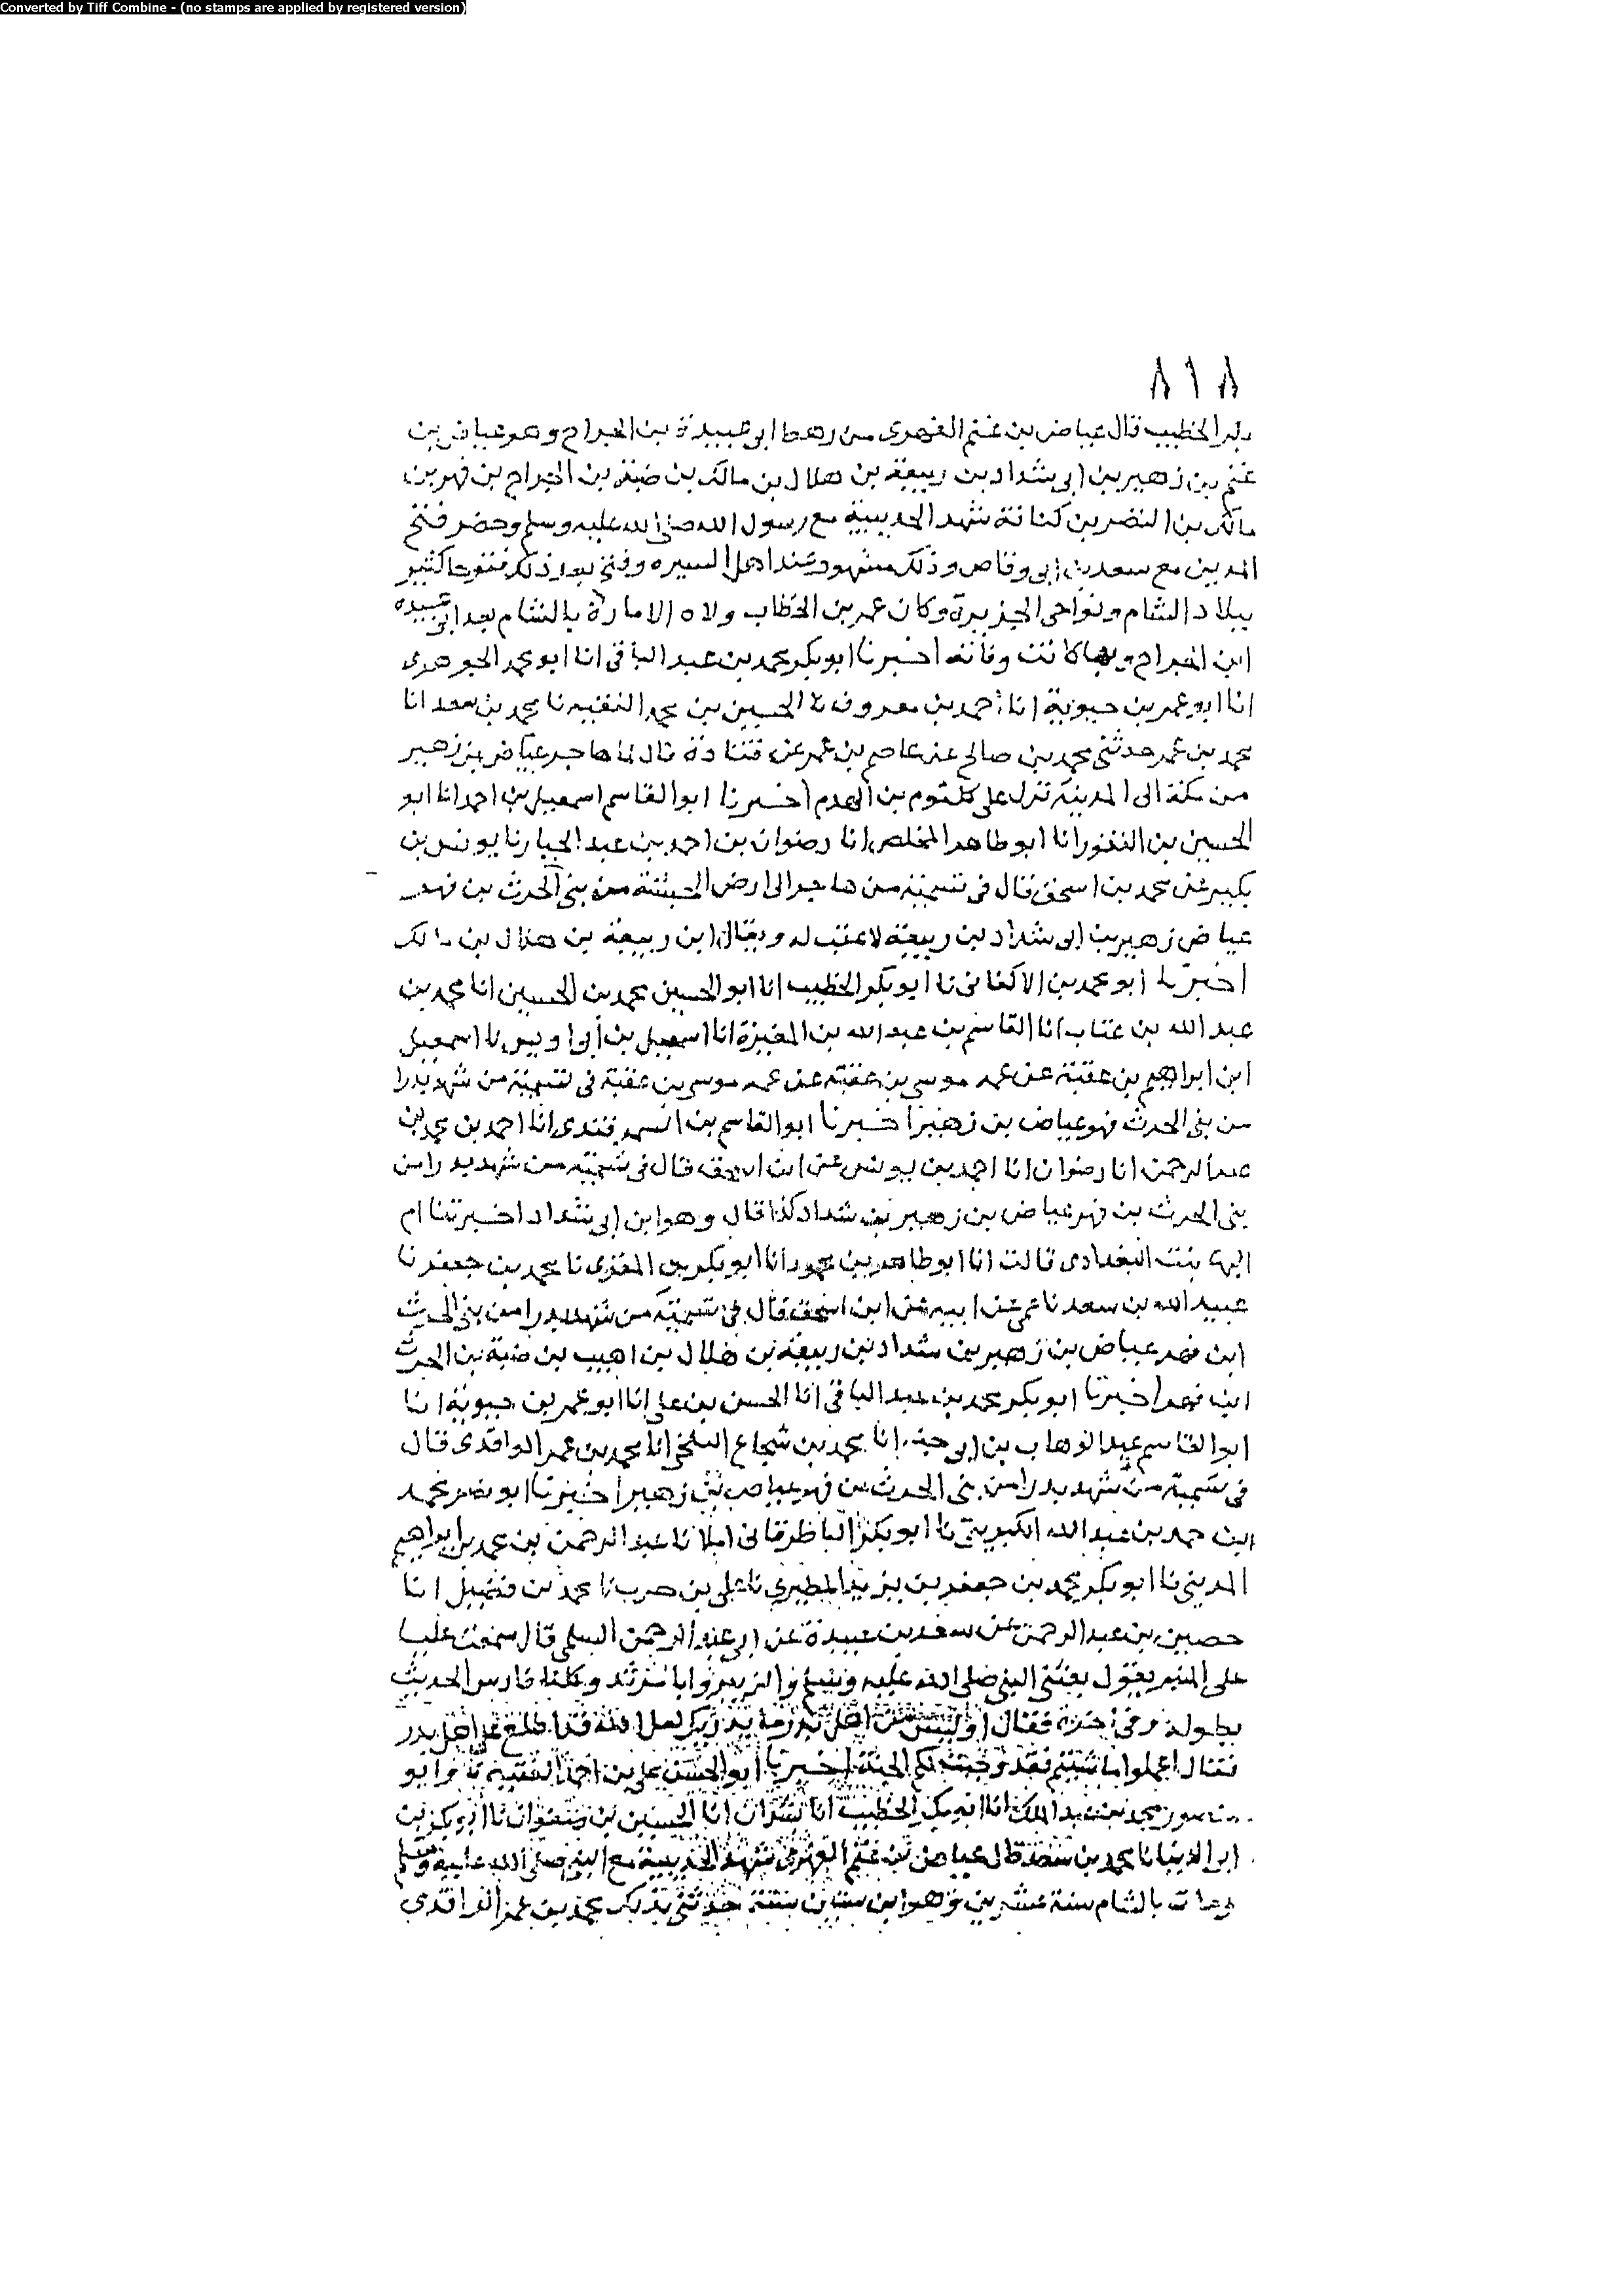 Converted by Tiff Combine - (no stamps are applied by registered version)
٨١٨
الخطيب قال عياض بن غنم الفهرى من رهط ابى عبيدة بن الجراح وهو عياض بن
غنم بن زهير بن ابى شداد بن ربيعة بن هلال بن مالك بن ضبة بن الجراح بن فهر بن
مالك بن النضر بن كنانة شهد الحديبية مع رسول الله صلى الله عليه وسلم وحضر فتح
المدين مع سعد بن ابى وقاص وذلك مشهور عند اهل السيره وفتح بعد ذلك فتوحا كثير
ببلاد الشام ونواحى الجزيرة وكان عمر بن الخطاب ولاه الامارة بالشام بعد ابى عبيده
ابن الجراح وبها كانت وفاته اخبرنا ابو بكر محمد بن عبد الباقى انا ابو محمد الجوهرى
انا ابو عمر بن حيوية انا احمد بن معروف نا الحسين بن محمد الفقيه نا محمد بن سعد انا
محمد بن عمر حدثنى محمد بن صالح عن عاصم بن عمر عن قتادة قال لما هاجر عياض بن زهير
من مكة الى المدينة نزل على كلثوم بن الهدم اخبرنا ابو القاسم اسمعيل بن احمد انا ابو
الحسين بن النقور انا ابو طاهر المخلص انا رضوان بن احمد بن عبد الجبار نا يونس بن
بكير عن محمد بن اسحق قال فى تسمية من هاجر الى ارض الحبشة من بنى الحرث بن فهر
عياض زهير بن ابى شداد بن ربيعة لا عقب له ويقال ابن ربيعة بن هلال بن مالك
اخبرنا ابو محمد بن الاكفانى نا ابو بكر الخطيب انا ابو الحسين محمد بن الحسين انا محمد بن
عبد الله بن عتاب انا القاسم بن عبد الله بن المغيرة انا اسمعيل بن ابى اويس نا اسمعيل
ابن ابراهيم بن عقبة عن عمه موسى بن عقبة عن عمه موسى بن عقبة فى تسمية من شهد بدرا
من بنى الحرث فهو عياض بن زهير اخبرنا ابو القاسم بن السمرقندى انا احمد بن محمد بن
عبد الرحمن انا رضوان انا احمد بن يونس عن ابن اسحق قال فى تسمية من شهد بدرا من
بنى الحرث بن فهر عياض بن زهير بن شداد كذا قال وهو ابن ابى شداد اخبرتنا ام
البهاء بنت البغدادى قالت انا ابو طاهر بن محمود انا ابو بكر بن المقرى نا محمد بن جعفر نا
عبيد الله بن سعد نا عمى عن ابيه عن ابن اسحق قال فى تسمية من شهد بدرا من بنى الحرث
ابن فهر عياض بن زهير بن شداد بن ربيعة بن هلال بن اهيب بن ضبة بن الحرث
ابن فهر اخبرنا ابو بكر محمد بن عبد الباقى انا الحسن بن على انا ابو عمر بن حيوية انا
ابو القاسم عبد الوهاب بن ابى حية انا محمد بن شجاع البلخى انا محمد بن عمر الواقدى قال
فى تسمية من شهد بدرا من بنى الحرث بن فهر عياض بن زهير اخبرنا ابو نصر محمد
ابن حمد بن عبد الله الكبريتى نا ابو بكر الباطرقانى املا نا عبد الرحمن بن محمد بن ابراهيم
المدينى نا ابو بكر محمد بن جعفر بن يزيد المطيرى نا على بن حرب نا محمد بن فضيل انا
حصين بن عبد الرحمن عن سعد بن عبيدة عن ابى عبد الرحمن السلمى قال سمعت عليا
على المنبر يقول بعثنى النبى صلى الله عليه وسلم والزبير وابا مرثد وكلنا فارس الحديث
بطوله وفى اخره فقال اوليس من اهل بدر وما يدريك لعل الله قد اطلع على اهل بدر
فقال اعملوا ما شئتم فقد وجبت لكم الجنة اخبرنا ابو الحسن على بن احمد الفقيه نا وابو
منصور محمد بن عبد الملك انا ابو بكر الخطيب انا بشران انا الحسين بن صفوان نا ابو بكر بن
ابى الدنيا نا محمد بن سعد قال عياض بن غنم الفهرى شهد الحديبية مع النبى صلى الله عليه وسلم
ومات بالشام سنة عشرين وهو ابن ستين سنة حدثنى بذلك محمد بن عمر الواقدى